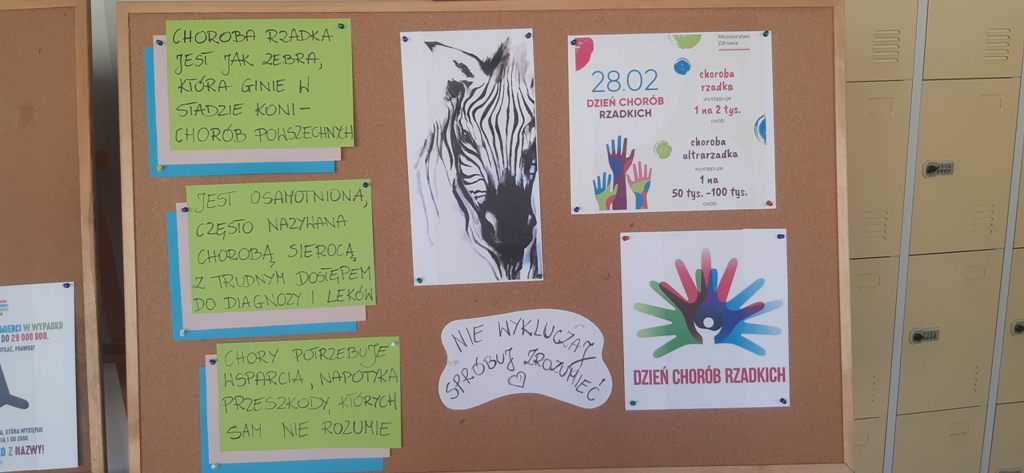 CHOROBA RZADKA
JEST JAK ZEBRA,
KTÓRA GINIE W
STADZIE KONI -
CHORÓB POWSZECHNYCH
JEST OSAMOTNIONA,
CZĘSTO NAZYWANA
CHOROBĄ SIEROCĄ
Z TRUDNYM DOSTĘPEM
DO DIAGNOZY I LEKÓW
CHORY POTRZEBUJE
WSPARCIA, NAPOTYKA
PRZESZKODY, KTÓRYCH
SAM NIE ROZUMIE
NIE WYKLUCZAJ
SPRÓBUJ ZROZUMIEĆ!
Ministerstwo
Zdrowia
28.02
DZIEŃ CHORÓB
RZADKICH
choroba
rzadka
występuje
1 na 2 tys.
osób
choroba
ultrarzadka
występuje
1 na
50 tys. -100 tys.
osób
DZIEŃ CHORÓB RZADKICH
MIERCI W WYPADKU
DO 29 000 000.
PRAWDA?
KTÓRA WYSTĘPUJE
Z NAZWY!